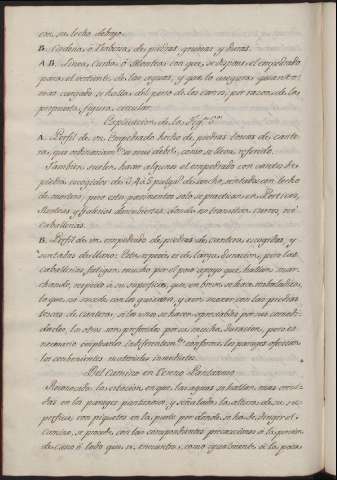 con su lecho debajo.
B. Cadena o Maestra de piedras gruesas y duras.
A.B. Linea Curba, ó Montea con que se dispone el empedrado
para el vertiente de las aguas, y que lo asegura quanto
mas cargado se halla del peso de los carros, por razon de la
propuesta figura circular.
Explicacion de la Fig.ª 5.ª
A. Perfil de un Empedrado hecho de piedras toscas de cante-
ra, que ordinariam.te es muy debil, como se lleva referido.
Tambien suelen hacer algunos el empedrado con cantos de
piedra escogidos de 3, 4 ó 5 pulg.s de ancho, sentados con lecho
de mortero, pero este pavimento solo se practica en Porticos,
y Galerias descubiertas donde no transitan carros, ni
caballerias.
B. Perfil de un empedrado de piedras de cantera escogidas, y
sentadas de llano. Esta especie es de larga duracion, pero las
caballerias fatigan mucho por el poco apoyo que hallan mar-
chando, respecto á su superficie, que en breve se hace
lo que no sucede con los guijarros, y aun menos con las piedras
toscas de cantera, si los unos se hacen apreciables por sus comodi-
dades, los otros son preferidos por su mucha duracion, pero es
necesario emplearlos indiferentem.te conforme los parages ofrecen
los combenientes materiales inmediatos.
Del Camino en Terreno Pantanoso
Reconocida la estacion, en que las aguas se hallan mas creci-
das en los parages pantanosos, y señalada la altura de su su-
perficie, con piquetes en la parte por donde se ha de dirigir el
Camino, se procede con las correspondientes precauciones á la
de cieno ó lodo que se encuentre, como igualmente si la poca